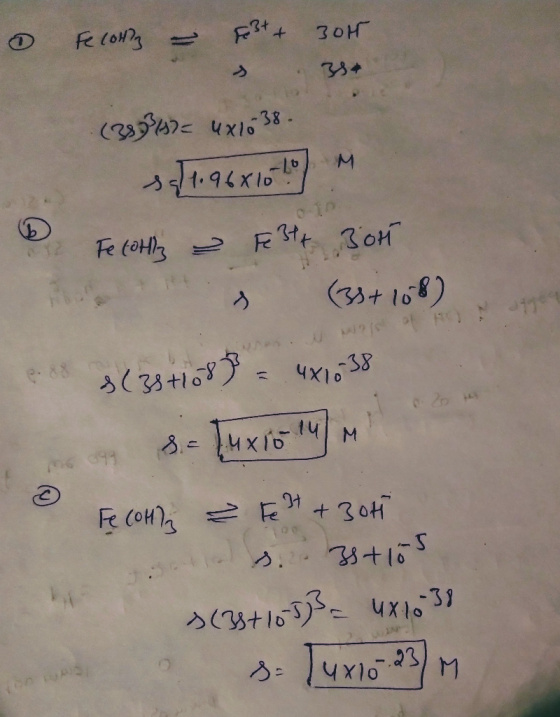 ① Fe(OH)3 ⇌ Fe3+ + 3OH-
s 3s
(3s)3(s) = 4×10-38.
s = 1.96×10-10 M
ⓑ Fe(OH)3 ⇌ Fe3+ + 3OH-
s (3s+10-8)
s(3s+10-8)3 = 4×10-38
s = 4×10-14 M
ⓒ Fe(OH)3 ⇌ Fe3+ + 3OH-
s. 3s+10-5
s(3s+10-5)3 = 4×10-38
s = 4×10-23 M